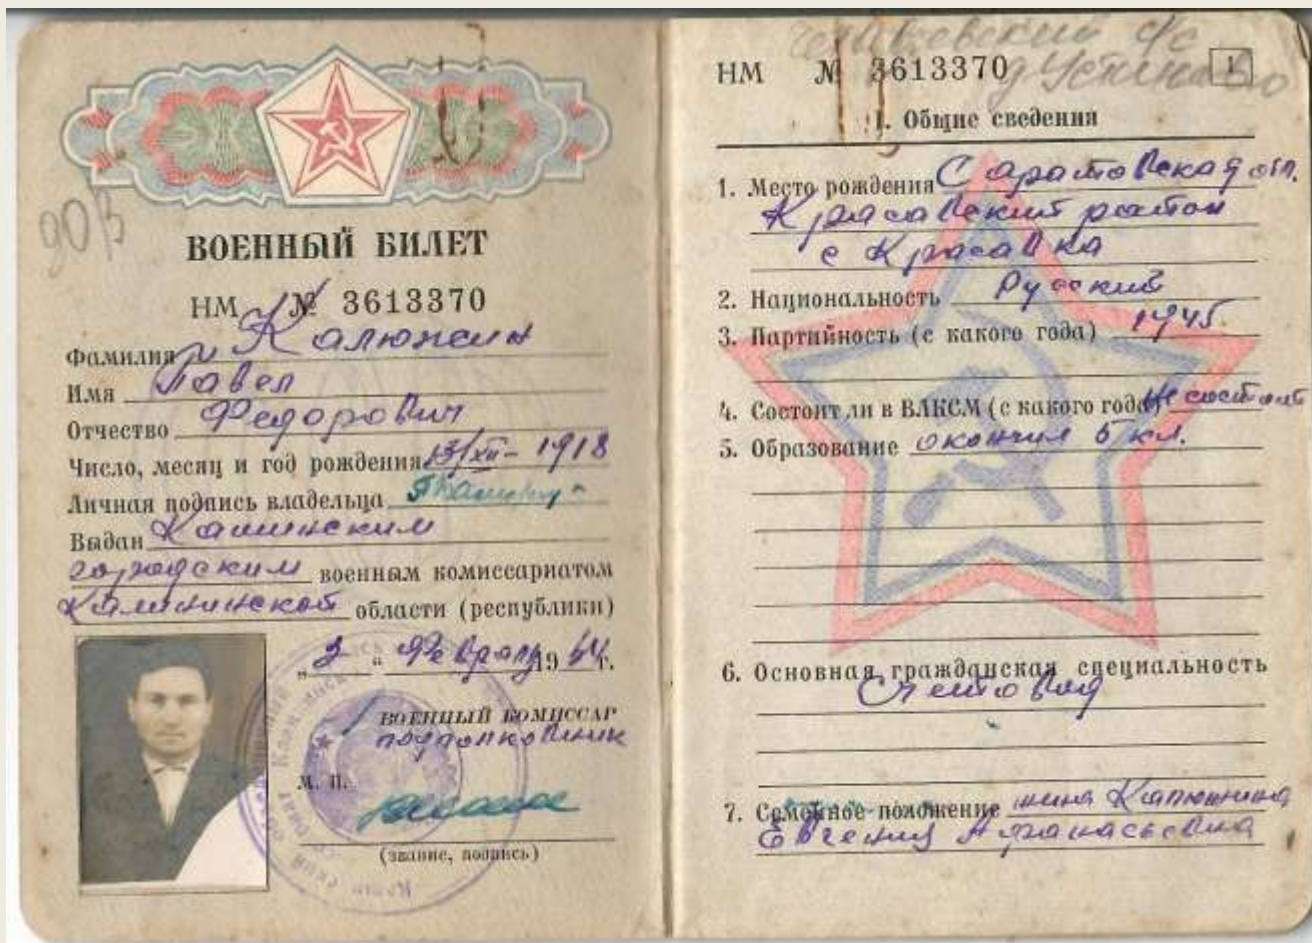 90 В
ВОЕННЫЙ БИЛЕТ
НМ № 3613370
Фамилия Калюжин
Имя Павел
Отчество Федорович
Число, месяц и год рождения 13/XII - 1918
Личная подпись владельца
Выдан Кашинским
городским военным комиссариатом
Калининской области (республики)
„3“ февраля 1964 г.
ВОЕННЫЙ КОМИССАР
подполковник
М. П.
(звание, подпись)
с/с
д Устиново
НМ № 3613370 1
I. Общие сведения
1. Место рождения Саратовская обл.
Красавский район
с Красавка
2. Национальность Русский
3. Партийность (с какого года) 1945
4. Состоит ли в ВЛКСМ (с какого года) Не состоит
5. Образование окончил 5 кл.
6. Основная гражданская специальность
Счетовод
7. Семейное положение жена Калюжина
Евгения Афанасьевна